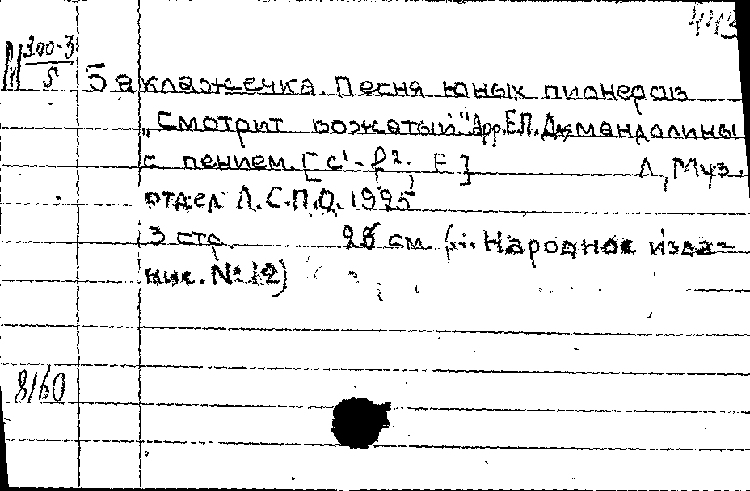 443
М 300-3
5
Баклажечка. Песня юных пионеров
„Смотрит вожатый" Арр. Е.П. Для мандолины
с пением. [c¹-f²; E] Л, Муз.
отдел Л.С.П.О. 1925
3 стр. 26 см. (... Народное изда=
ние. № 12)
8160